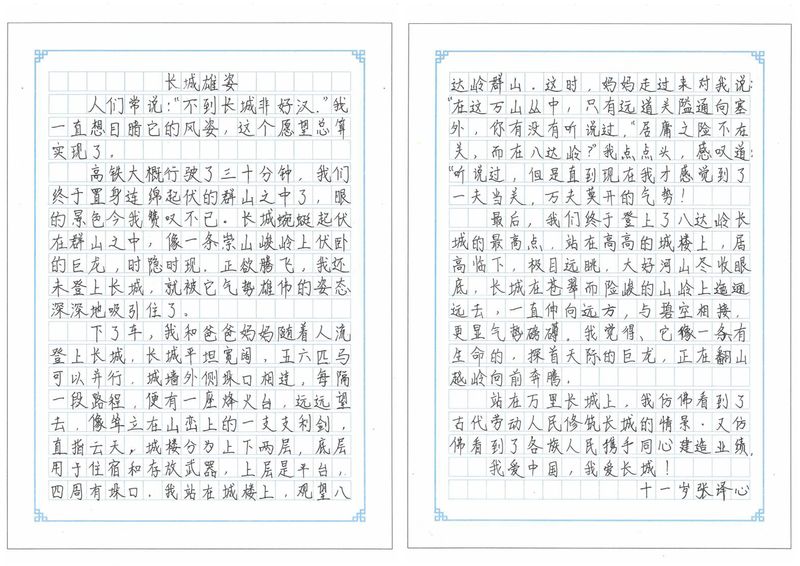 长城雄姿
人们常说:“不到长城非好汉.”我
一直想目睹它的风姿，这个愿望总算
实现了。
高铁大概行驶了三十分钟，我们
终于置身连绵起伏的群山之中了，眼
的景色令我赞叹不已。长城蜿蜒起伏
在群山之中，像一条崇山峻岭上伏卧
的巨龙，时隐时现.正欲腾飞，我还
未登上长城，就被它气势雄伟的姿态
深深地吸引住了。
下了车，我和爸爸妈妈随着人流
登上长城，长城平坦宽阔，五六匹马
可以并行，城墙外侧垛口相连，每隔
一段路程，便有一座烽火台，远远望
去，像耸立在山峦上的一支支利剑，
直指云天。城楼分为上下两层，底层
用于住宿和存放武器，上层是平台，
四周有垛口。我站在城楼上，观望八
达岭群山.这时，妈妈走过来对我说:
“在这万山丛中，只有远道关隘通向塞
外，你有没有听说过，“居庸之险不在
关，而在八达岭?”我点点头，感叹道:
“听说过，但是直到现在我才感觉到了
一夫当关，万夫莫开的气势！
最后，我们终于登上了八达岭长
城的最高点，站在高高的城楼上，居
高临下，极目远眺，大好河山尽收眼
底，长城在苍翠而险峻的山岭上逶迤
远去，一直伸向远方，与碧空相接，
更显气势磅礴。我觉得、它像一条有
生命的，探首天际的巨龙，正在翻山
越岭向前奔腾。
站在万里长城上，我仿佛看到了
古代劳动人民修筑长城的情景.又仿
佛看到了各族人民携手同心建造业绩.
我爱中国，我爱长城！
十一岁张译心